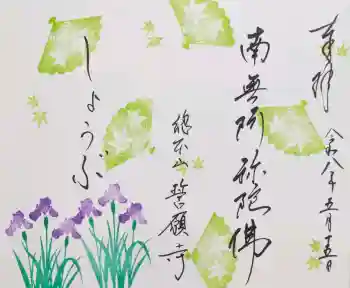 奉拝
令八年五月十五日
南無阿弥陀佛
總本山誓願寺
しょうぶ